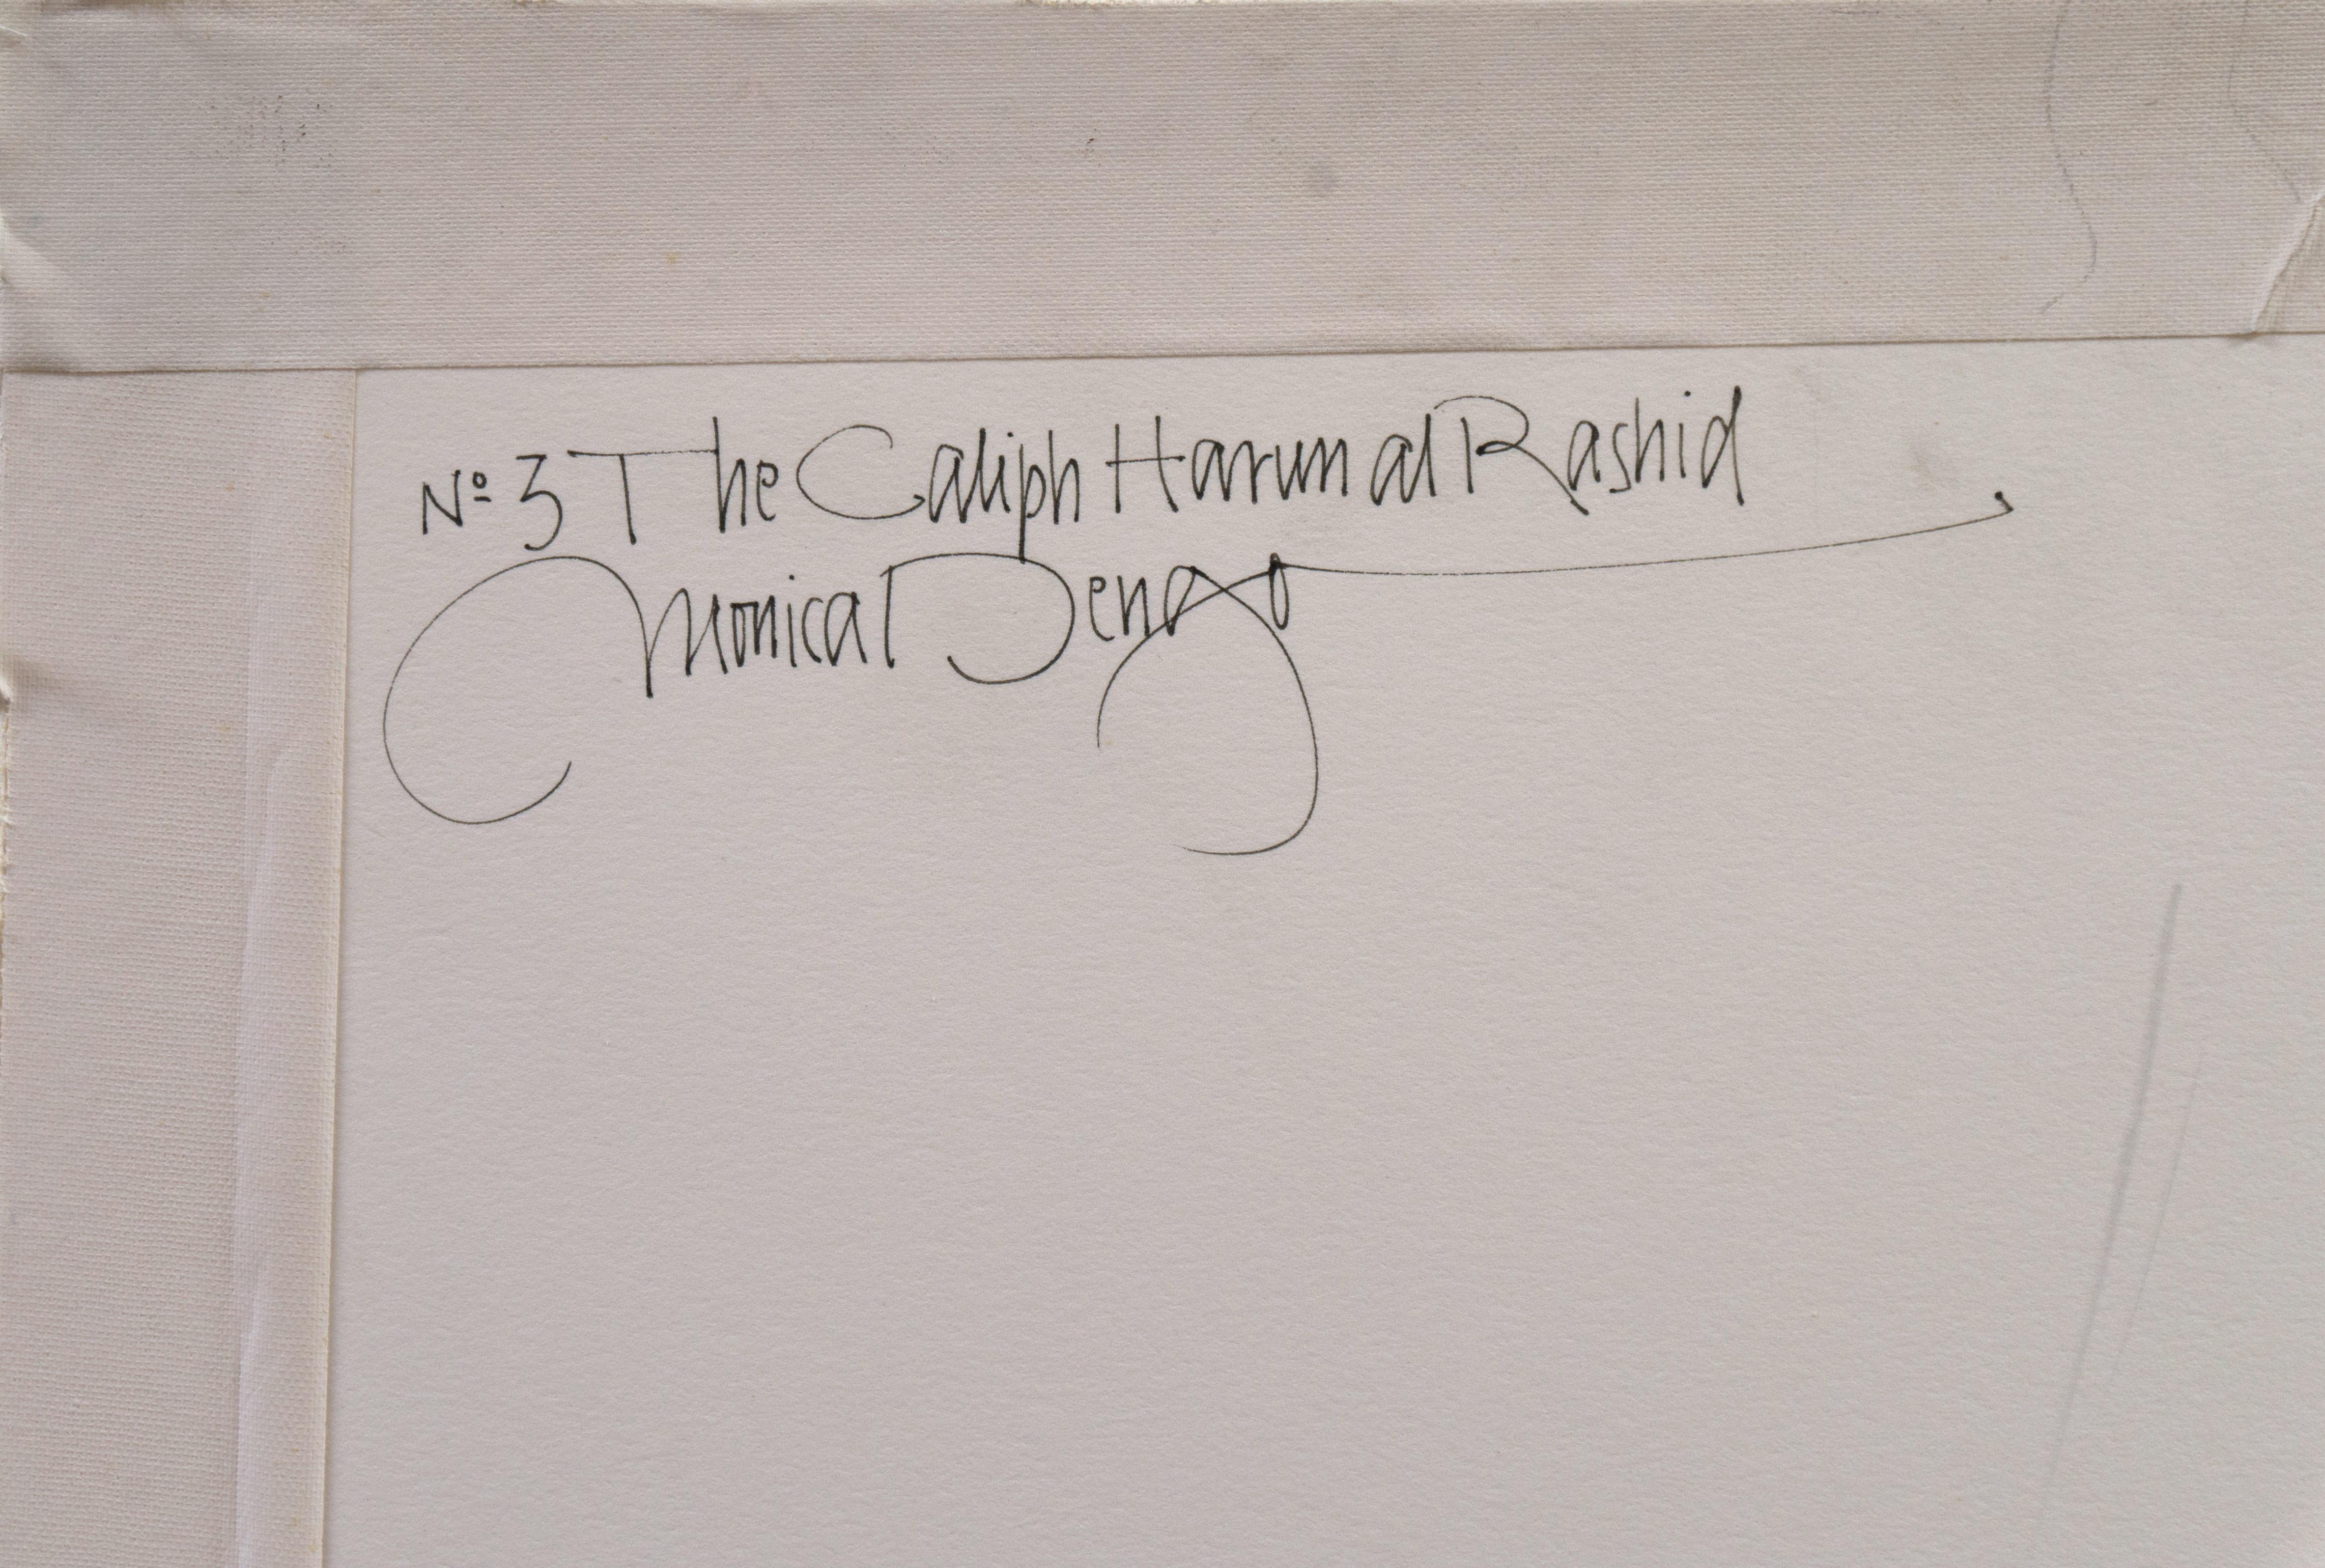 Nº 3 The Caliph Harun al Rashid
Monica Dengo